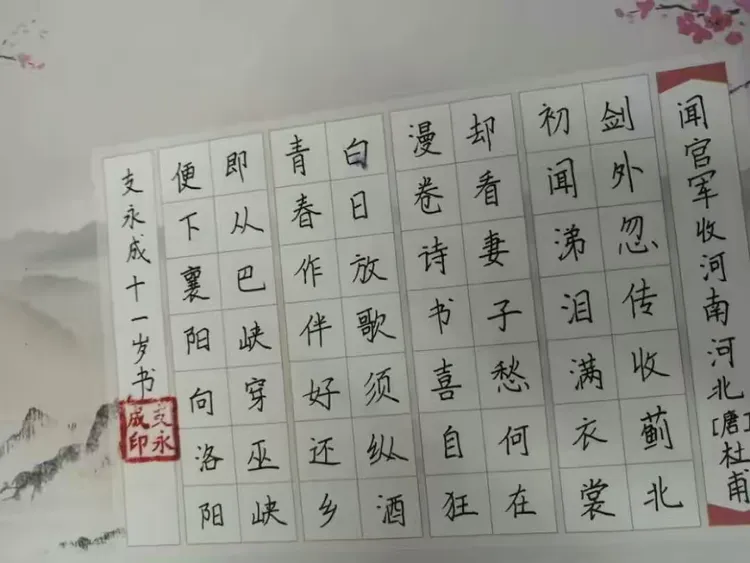 闻官军收河南河北[唐]杜甫
剑外忽传收蓟北
初闻涕泪满衣裳
却看妻子愁何在
漫卷诗书喜自狂
白日放歌须纵酒
青春作伴好还乡
即从巴峡穿巫峡
便下襄阳向洛阳
支永成十一岁书
支永
成印